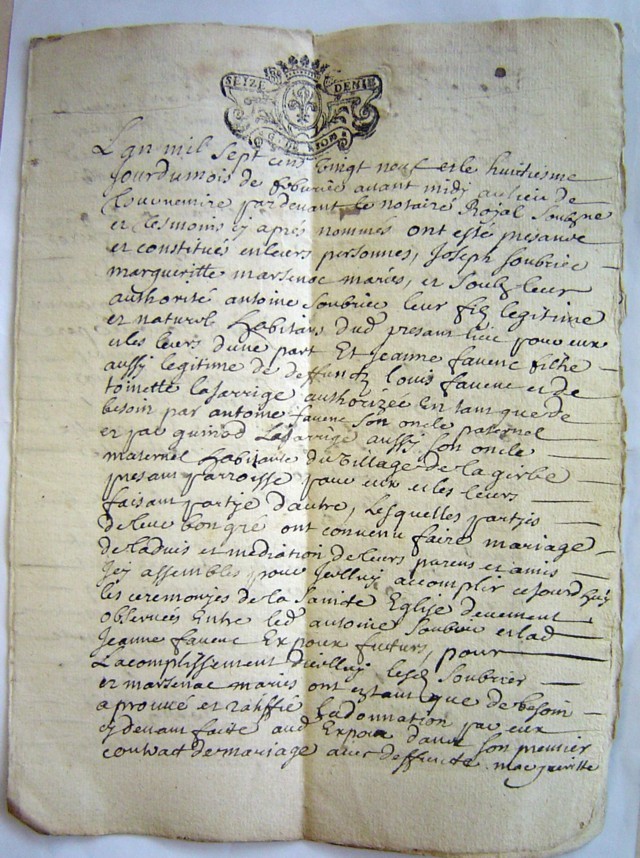 SEIZE DENIE
G. DE RIOM
Lan mil sept cens vingt neuf et le huitiesme
jour du mois de febvrier avant midy au lieu de
Tournemire pardevant le notaire Royal Soubzne
et tesmoins cy apres nommes ont esté presans
et constitués en leurs personnes, Joseph Soubrier
margueritte marsenac mariés, et Soubz leur
authorité antoine Soubrier leur filz legitime
et naturel habitans dud presant lieu pour eux
et les leurs dune part Et jeanne fauerc filhe
aussy legitime de deffuncz louis fauerc et de
toinette lasarrige authorizée en tant que de
besoin par antoine fauerc son oncle paternel
et lasarrige aussy son oncle
maternel habitants du village de la girbe
presant parroisse pour eux et les leurs
faisant partie dautre, Lesquelles parties
de leur bon gre ont convenu faire mariage
de laduis et mediation de leurs parens et amis
Icy assembles pour Icelluy accomplir ce jourdhuy
les ceremonies de la Sainte Eglise deuement
observées Entre led antoine Soubrier et lad
jeanne fauerc Expoux futurs, pour
Lacomplissement dicelluy lesd Soubrier
et marsenac mariés ont en tant que de besoin
aprouué et ratiffié la donnation par eux
cy devant faite aud Expoux dans son premier
contract de mariage avec deffuncte margueritte